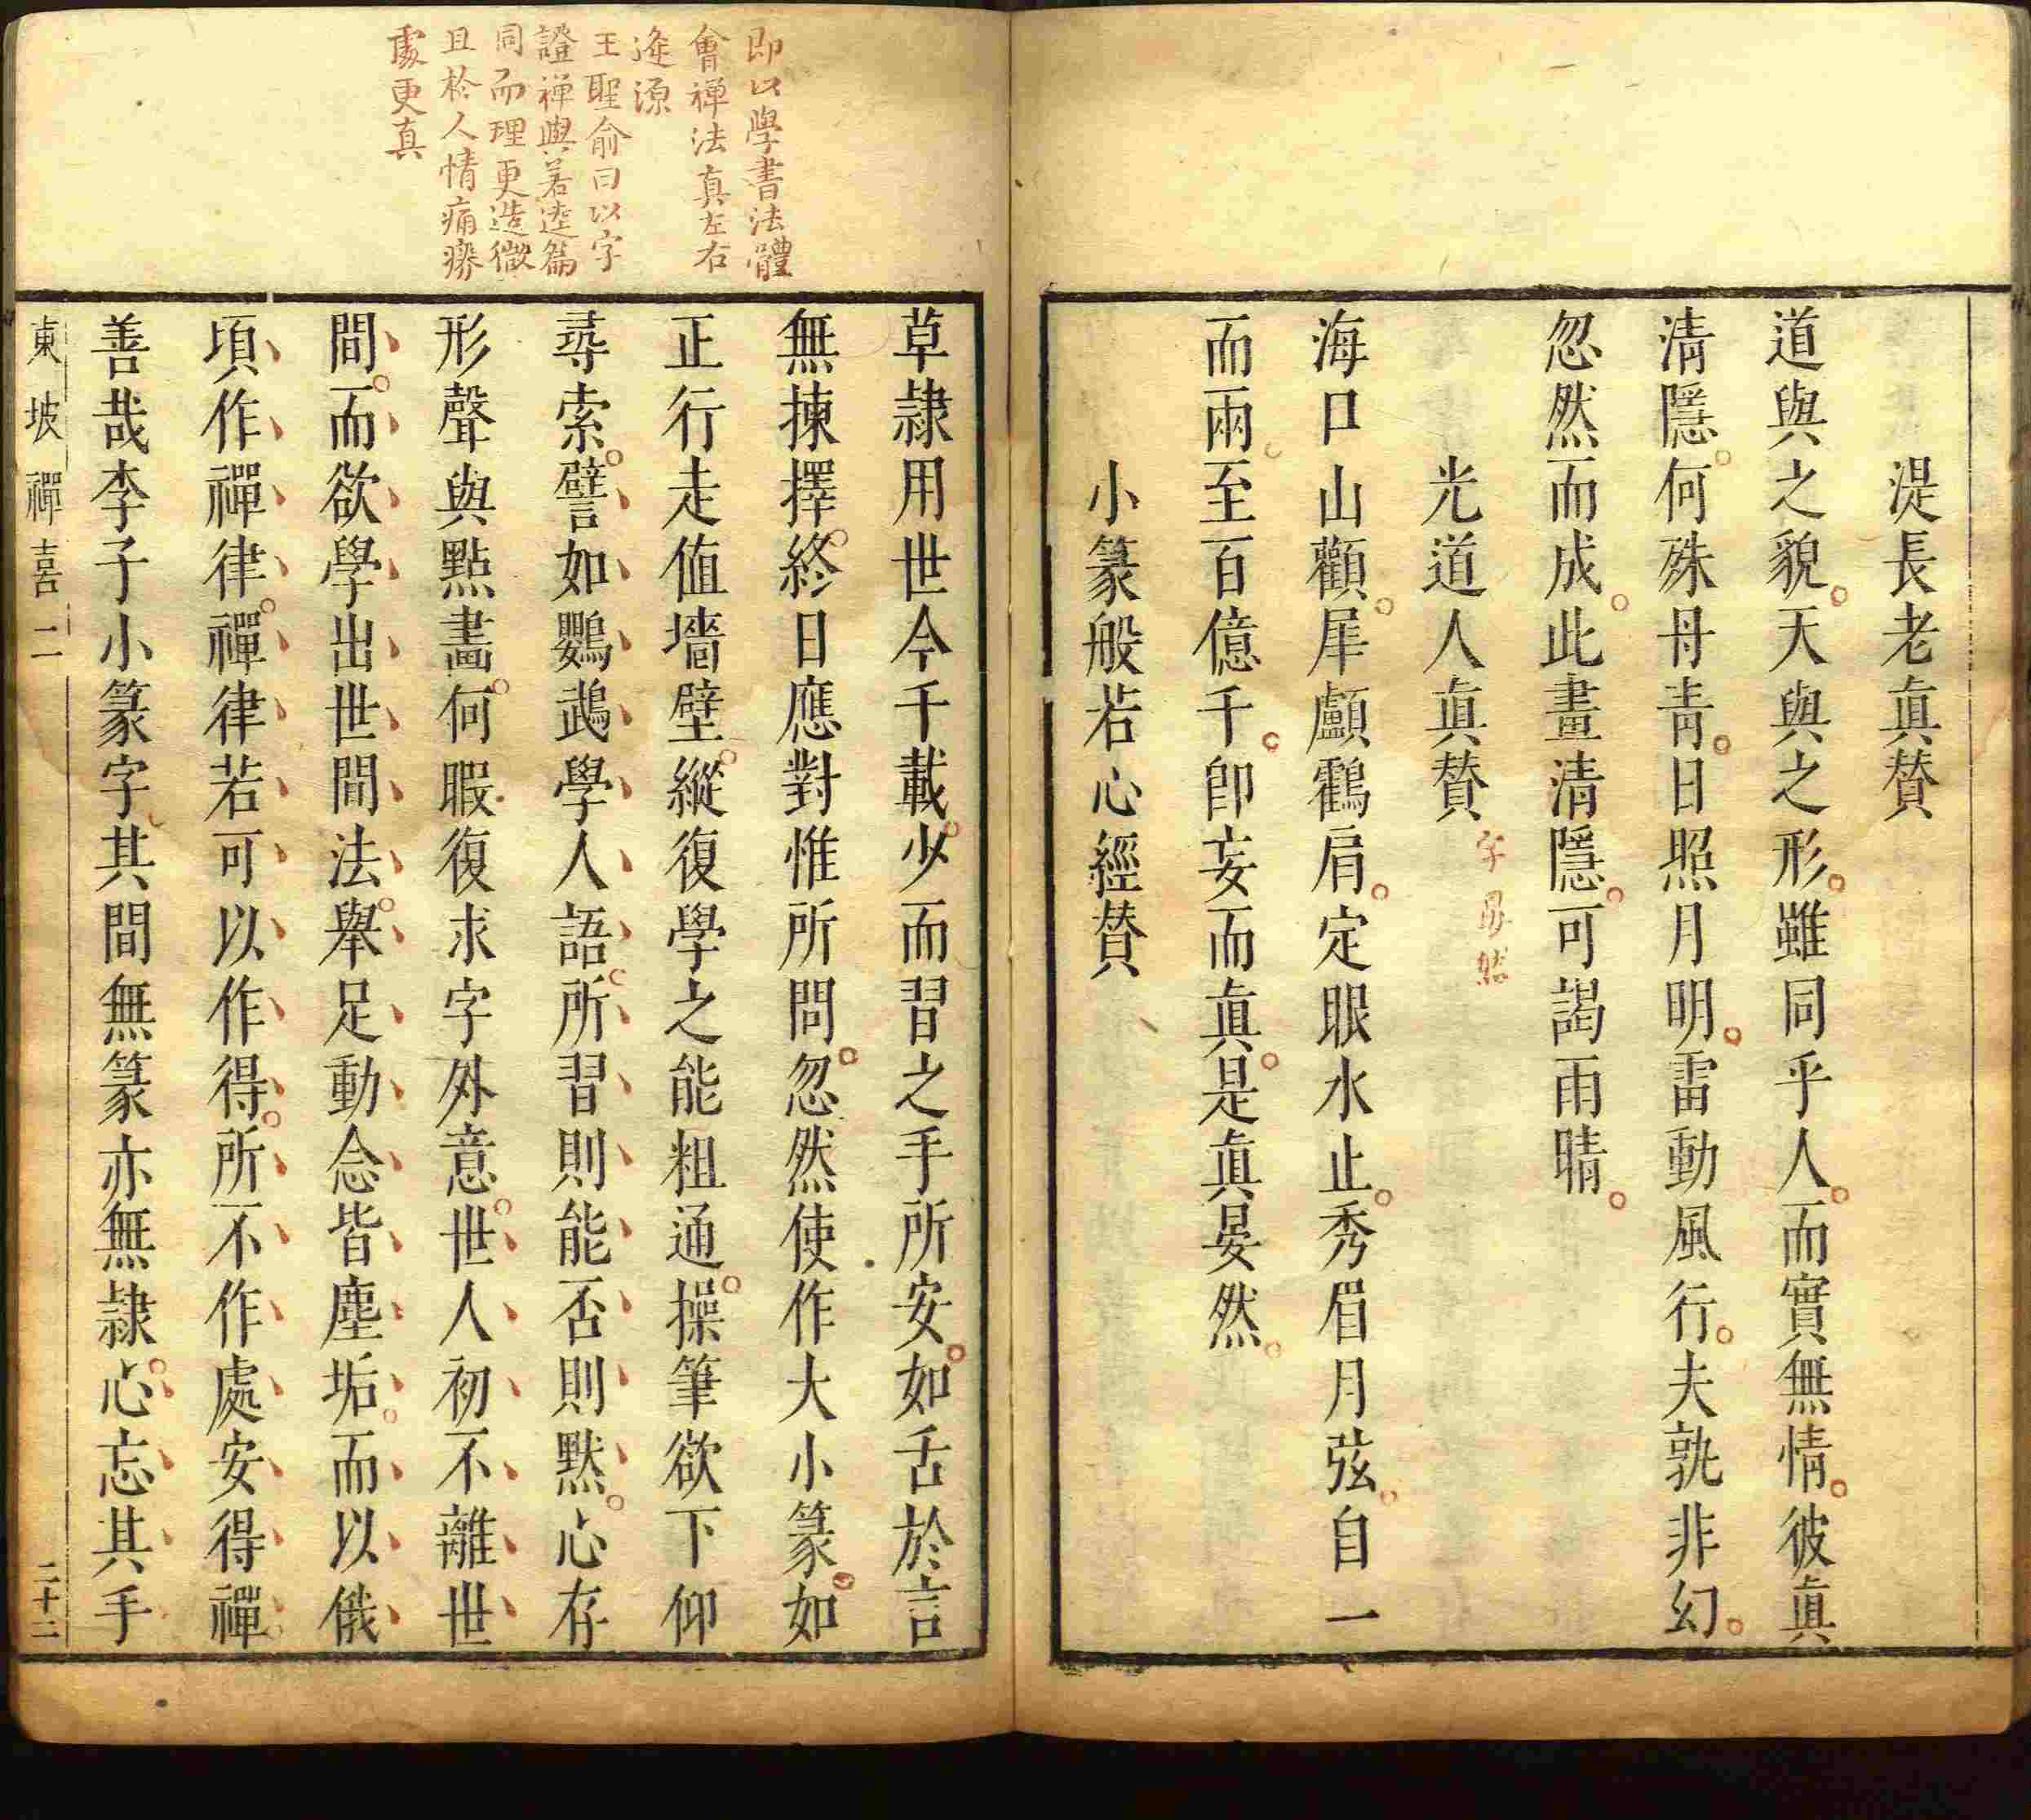 湜長老眞賛
道與之貌天與之形雖同乎人而實無情彼眞
清隱何殊丹青日照月明雷動風行夫孰非幻
忽然而成此畫清隱可謁雨晴
光道人眞賛
海口山顴犀顱鸖肩定眼水止秀眉月弦自一
而兩至百億千卽妄而眞是眞晏然
小篆般若心經賛
草隷用世今千載少而習之手所安如舌於言
無揀擇終日應對惟所問忽然使作大小篆如
正行走值墻壁縱復學之能粗通操筆欲下仰
尋索譬如鸚鵡學人語所習則能否則默心存
形聲與點畫何暇復求字外意世人初不離世
間而欲學出世間法舉足動念皆塵垢而以俄
頃作禪律禪律若可以作得所不作處安得禪
善哉李子小篆字其間無篆亦無隷心忘其手
東坡禪喜 二 二十二
即以學書法體
會禅法真左右
逢源
王聖俞曰以字
證禅與若逵篇
同而理更造微
且於人情痛癢
處更真